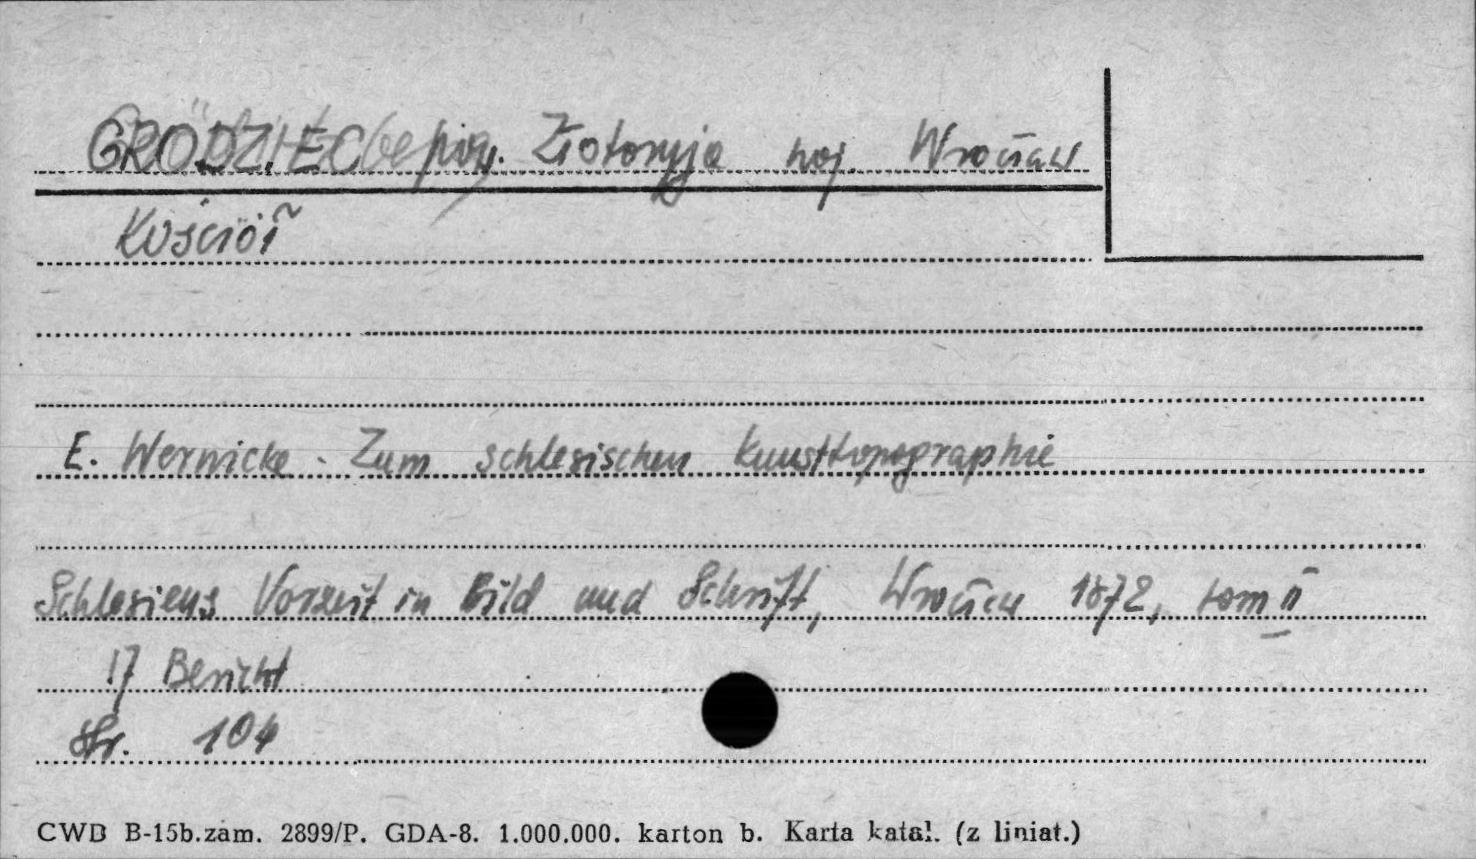 GRODZIEC pow. Złotoryja woj. Wrocław
Kościół
E. Wernicke - Zum schlesischen Kunsttopographie
Schlesiens Vorzeit in Bild und Schrift, Wrocław 1872, tom II
17 Bericht
Str. 104
CWD B-15b.zam. 2899/P. GDA-8. 1.000.000. karton b. Karta katal. (z liniat.)